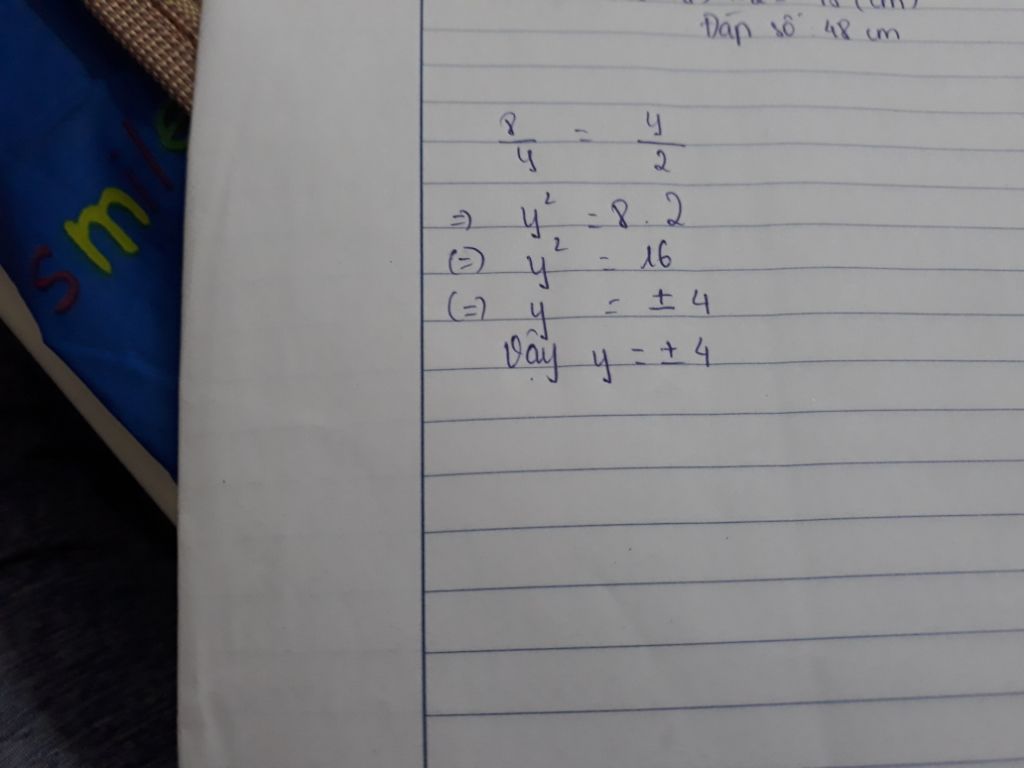 (cm)
Đáp số : 48 cm
8/y = y/2
=> y² = 8 . 2
(=) y² = 16
(=) y = ± 4
Vậy y = ± 4
smile